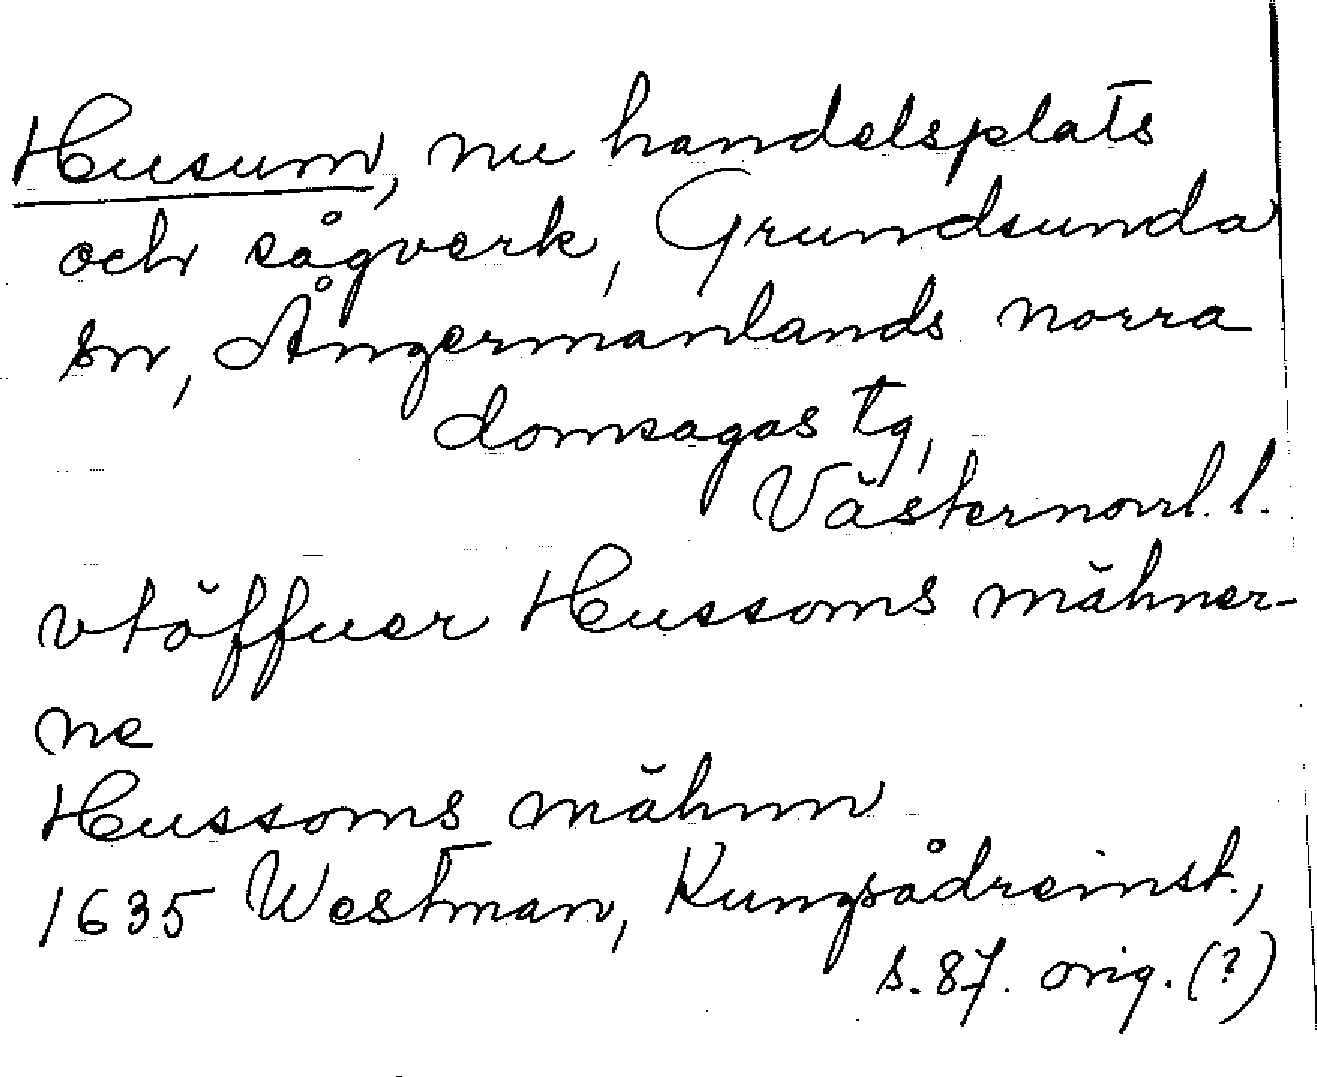 Husum, nu handelsplats
och sågverk, Grundsunda
sn, Ångermanlands norra
domsagas tg,
Västernorrl. l.
vtöffuer Hussoms mähner-
ne
Hussoms mähnn
1635 Westman, Kungsådreinst.,
s. 87. orig. (?)